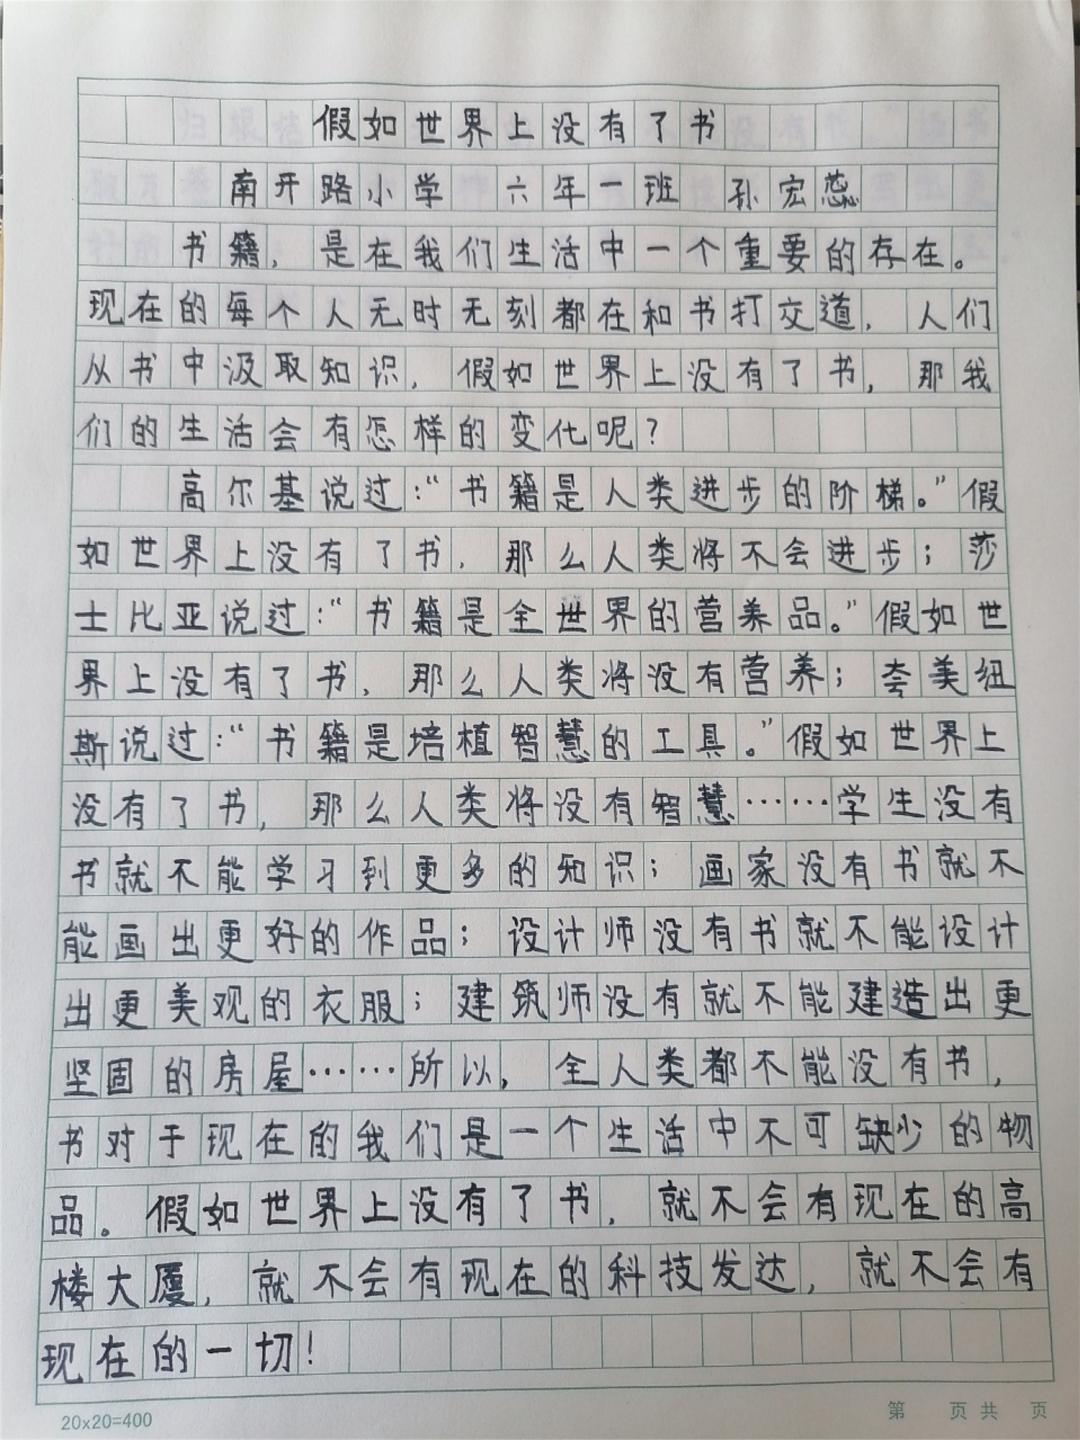 假如世界上没有了书
南开路小学 六年一班 孙宏蕊
书籍,是在我们生活中一个重要的存在。
现在的每个人无时无刻都在和书打交道,人们
从书中汲取知识,假如世界上没有了书,那我
们的生活会有怎样的变化呢?
高尔基说过:“书籍是人类进步的阶梯。”假
如世界上没有了书,那么人类将不会进步;莎
士比亚说过:“书籍是全世界的营养品。”假如世
界上没有了书,那么人类将没有营养;夸美纽
斯说过:“书籍是培植智慧的工具。”假如世界上
没有了书,那么人类将没有智慧……学生没有
书就不能学习到更多的知识;画家没有书就不
能画出更好的作品;设计师没有书就不能设计
出更美观的衣服;建筑师没有就不能建造出更
坚固的房屋……所以,全人类都不能没有书,
书对于现在的我们是一个生活中不可缺少的物
品。假如世界上没有了书,就不会有现在的高
楼大厦,就不会有现在的科技发达,就不会有
现在的一切!
20×20=400 第 页 共 页